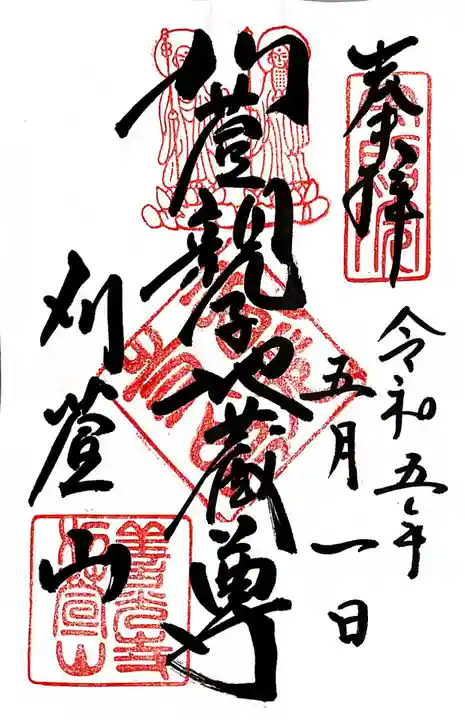 奉拝
令和五年
五月一日
刈萱親子地蔵尊
刈萱山
善光寺